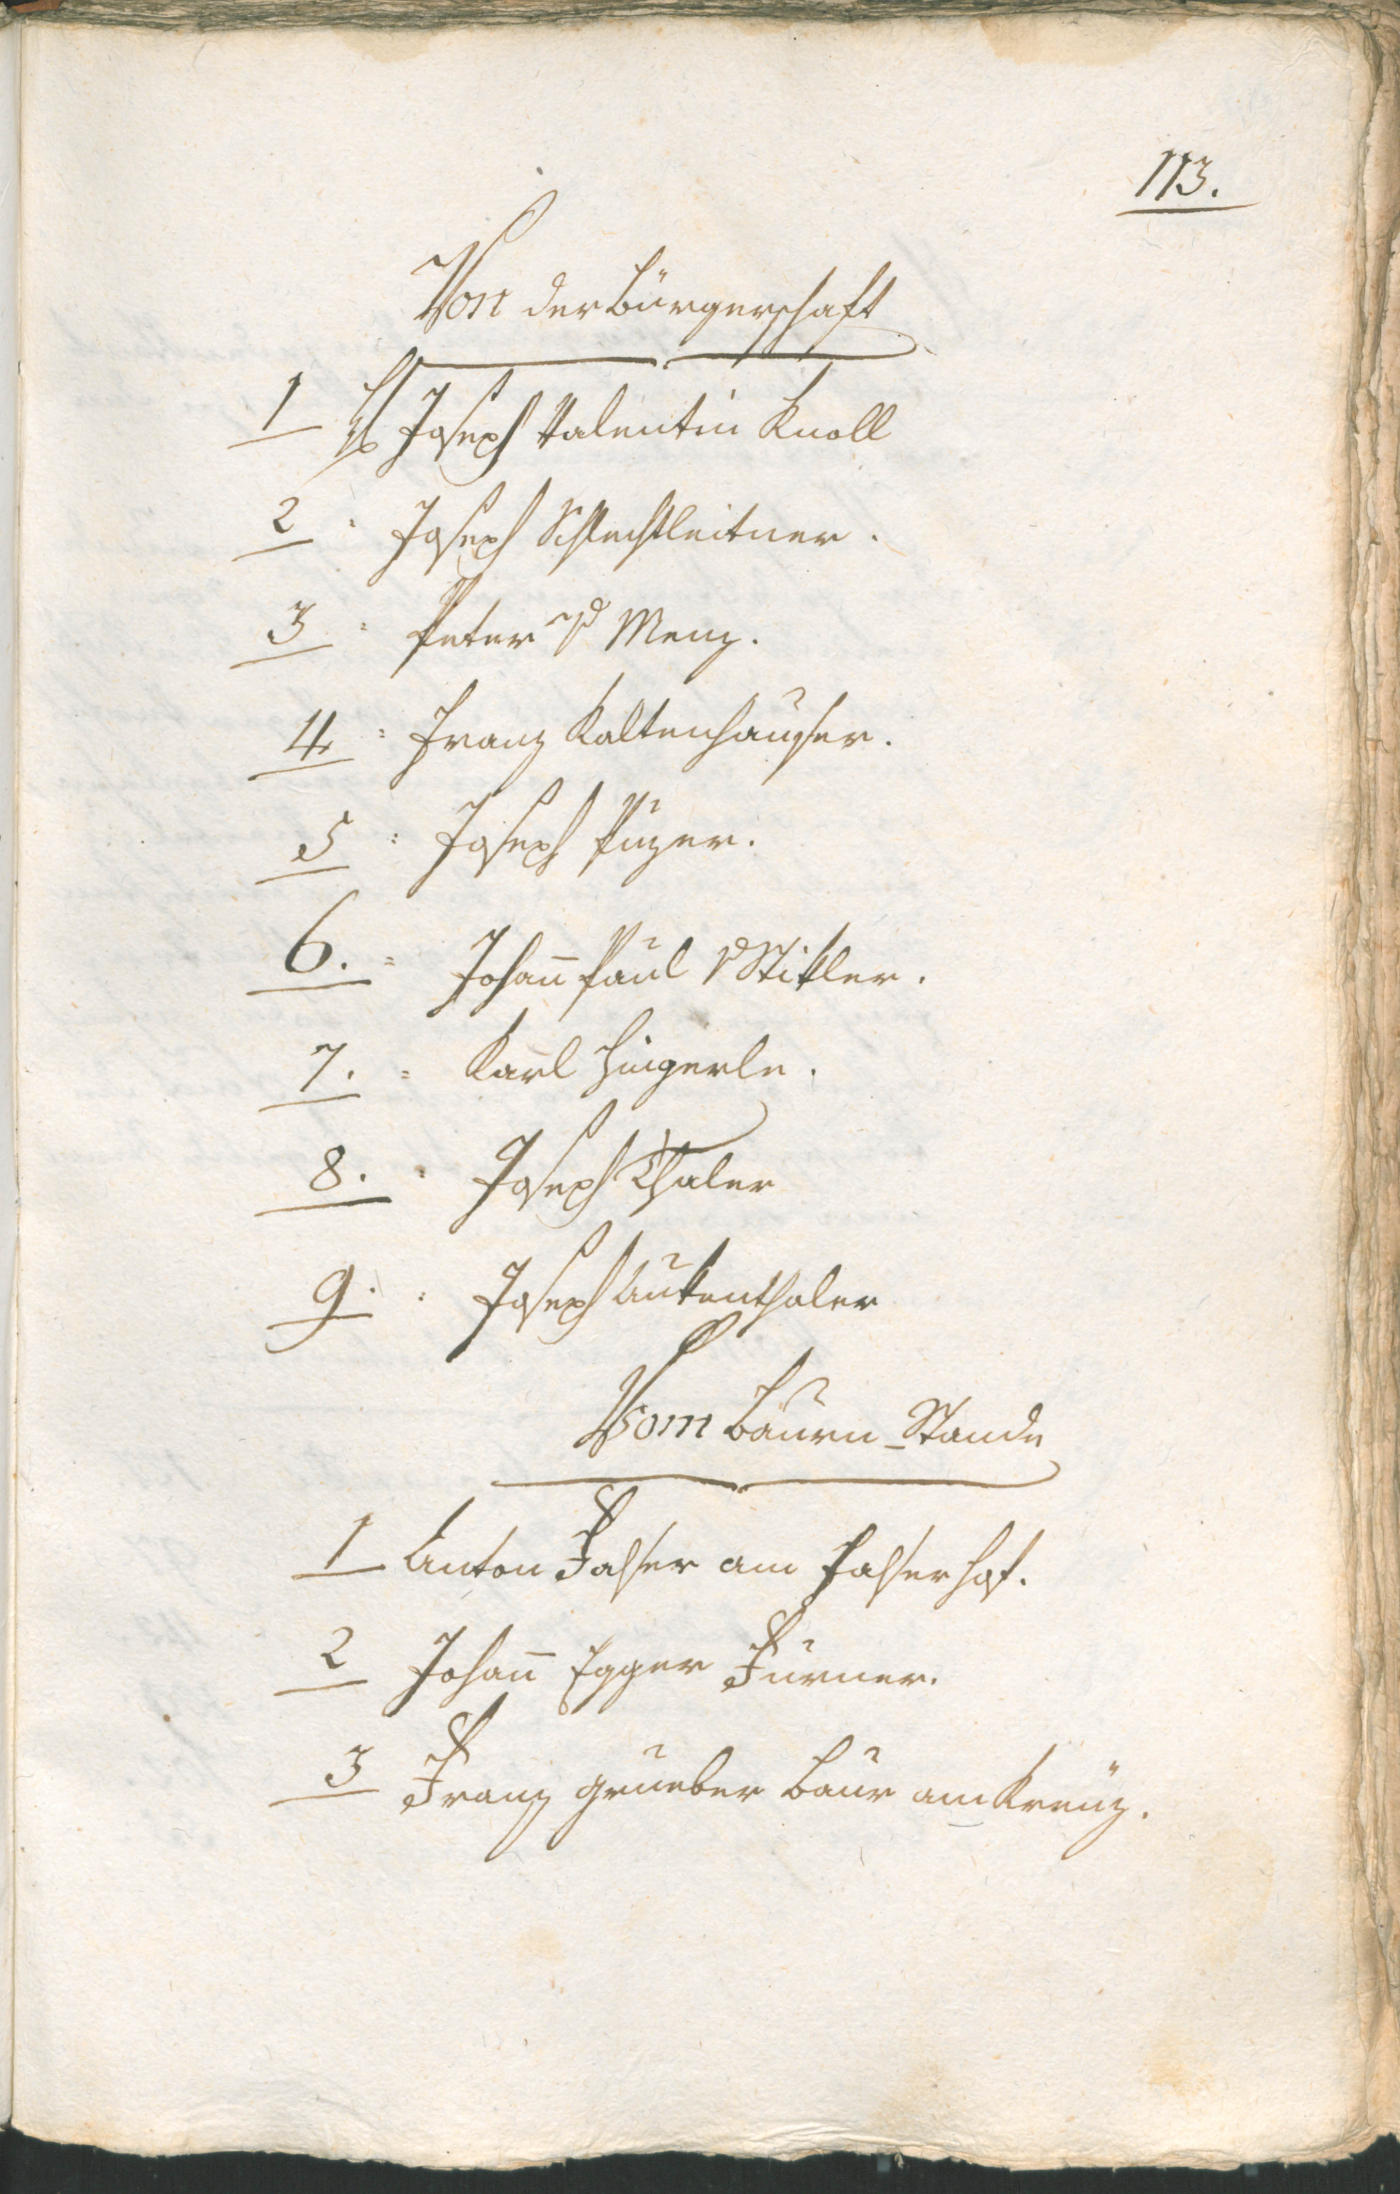 113.
Von der Bürgerschaft
1 H Joseph Valentin Knoll
2 : Joseph Schlechtleitner.
3 : Peter v Menz.
4. : Franz Kaltenhauser.
5 : Joseph Puzer.
6. = Johan̅ Paul v Stikler.
7. = Karl Hingerle.
8. : Joseph Thaler
9. : Joseph Aukenthaler
Vom Bauren-Stande
1 Anton Falser am Falserhof.
2 Johan̅ Egger Furner.
3 Franz Grueber Baur am Kreüz.